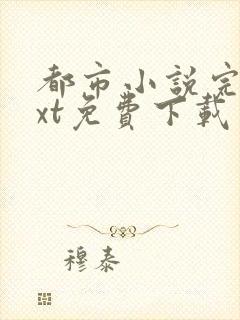 都市小說完
xt免費下載
穆泰